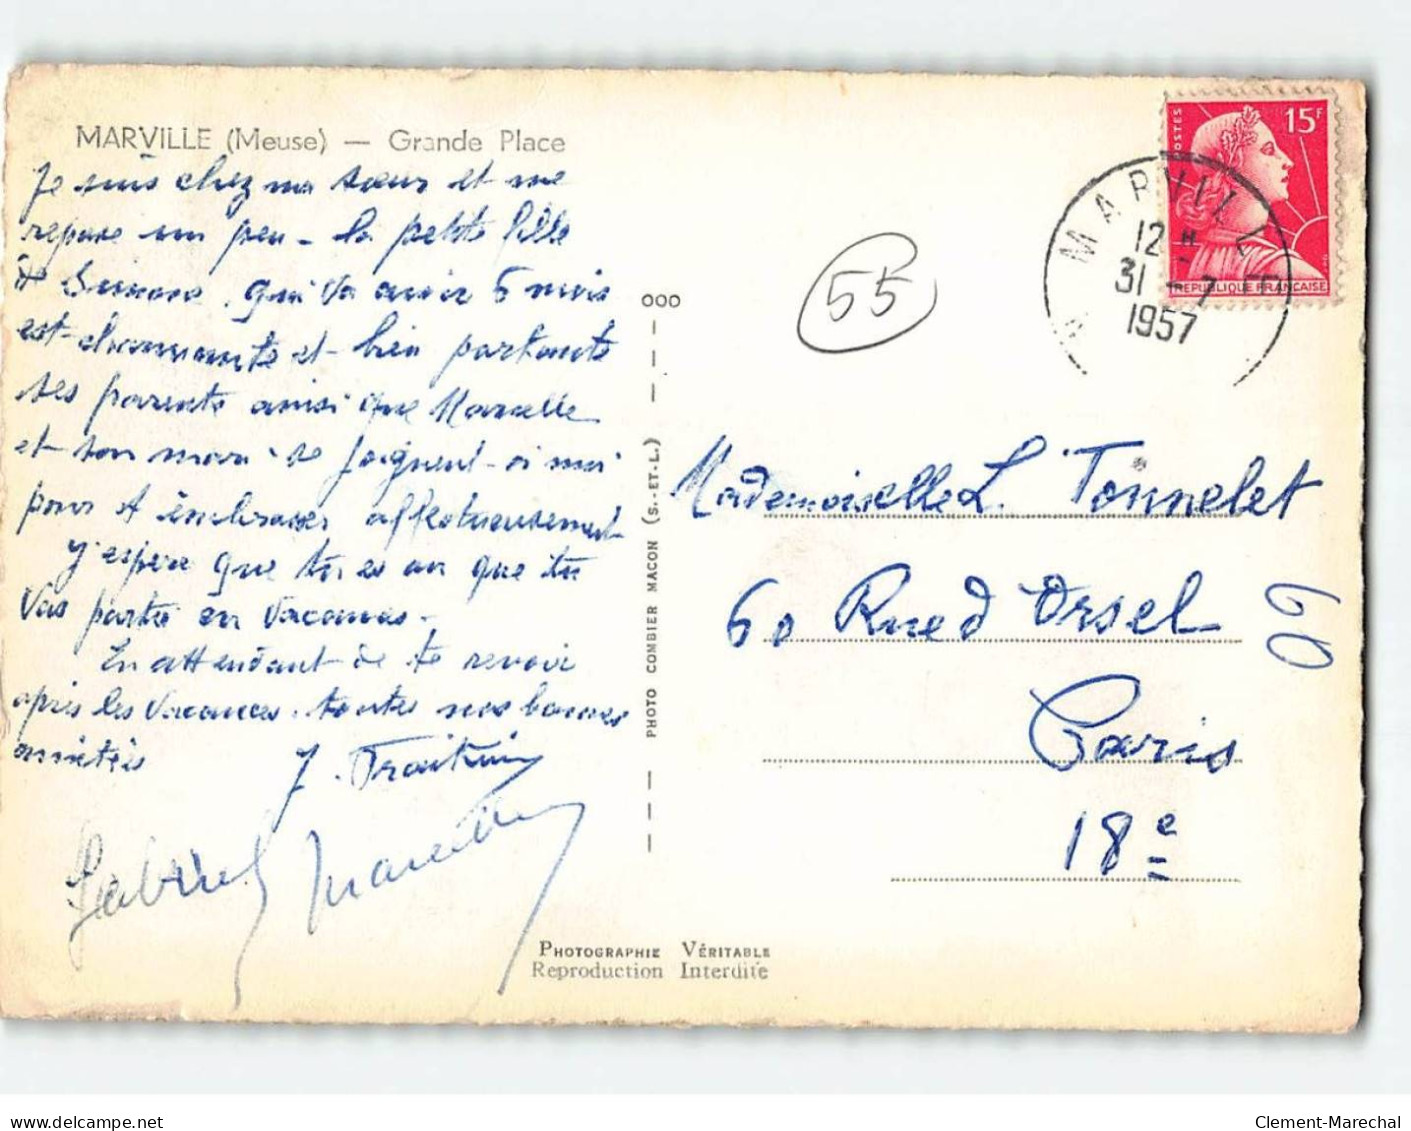 MARVILLE (Meuse) — Grande Place
Je suis chez ma sœur et me
repose un peu - la petite fille
de Simone qui va avoir 6 mois
est charmante et bien portante
ses parents ainsi que Marcelle
et son mari se joignent à moi
pour t'embrasser affectueusement
J'espère que tu es ou que tu
vas partir en vacances -
En attendant de te revoir
après les vacances, toutes nos bonnes
amitiés
J.
Gabriel Marcelle
000
PHOTO COMBIER MACON (S.-ET-L.)
PHOTOGRAPHIE VÉRITABLE
Reproduction Interdite
55
POSTES
15F
REPUBLIQUE FRANCAISE
MARVILLE
12 H
31 - 7
1957
Mademoiselle L. Tonnelet
60 Rue d'Orsel
Paris
18e
60
delcampe.net
Clement-Marechal